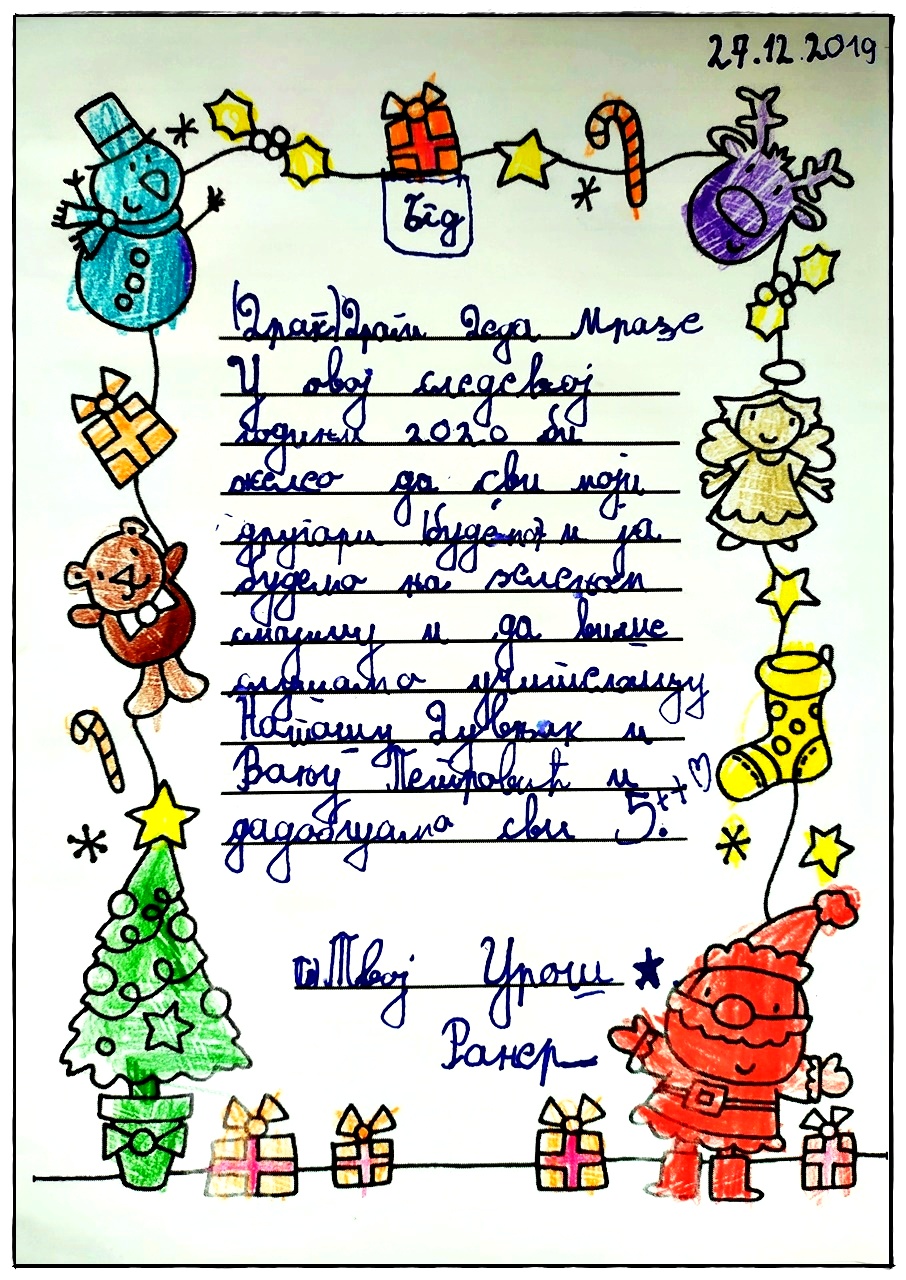 27.12.2019
Бїд
(Драг) Драги Деда Мразе
У овој следећој
години 2020 би
желео да сви моји
другари будемо и ја
будемо на зеленом
смајлију и да више
слушамо учитељицу
Наташу Дувњак и
Вању Петровић и
дадобијамо сви 5.++
Твој Урош
Ранер